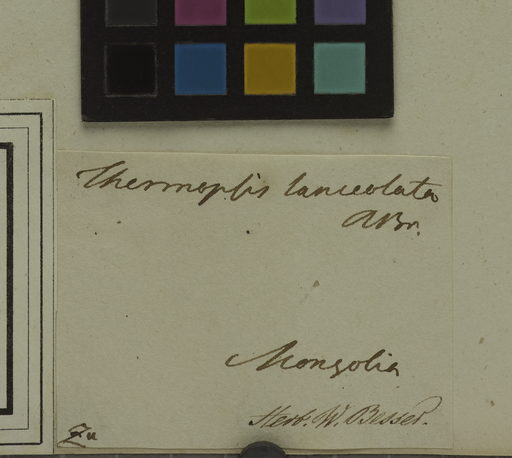 Thermopsis lanceolata
R Br.
Mongolia
Herb. W. Besser.